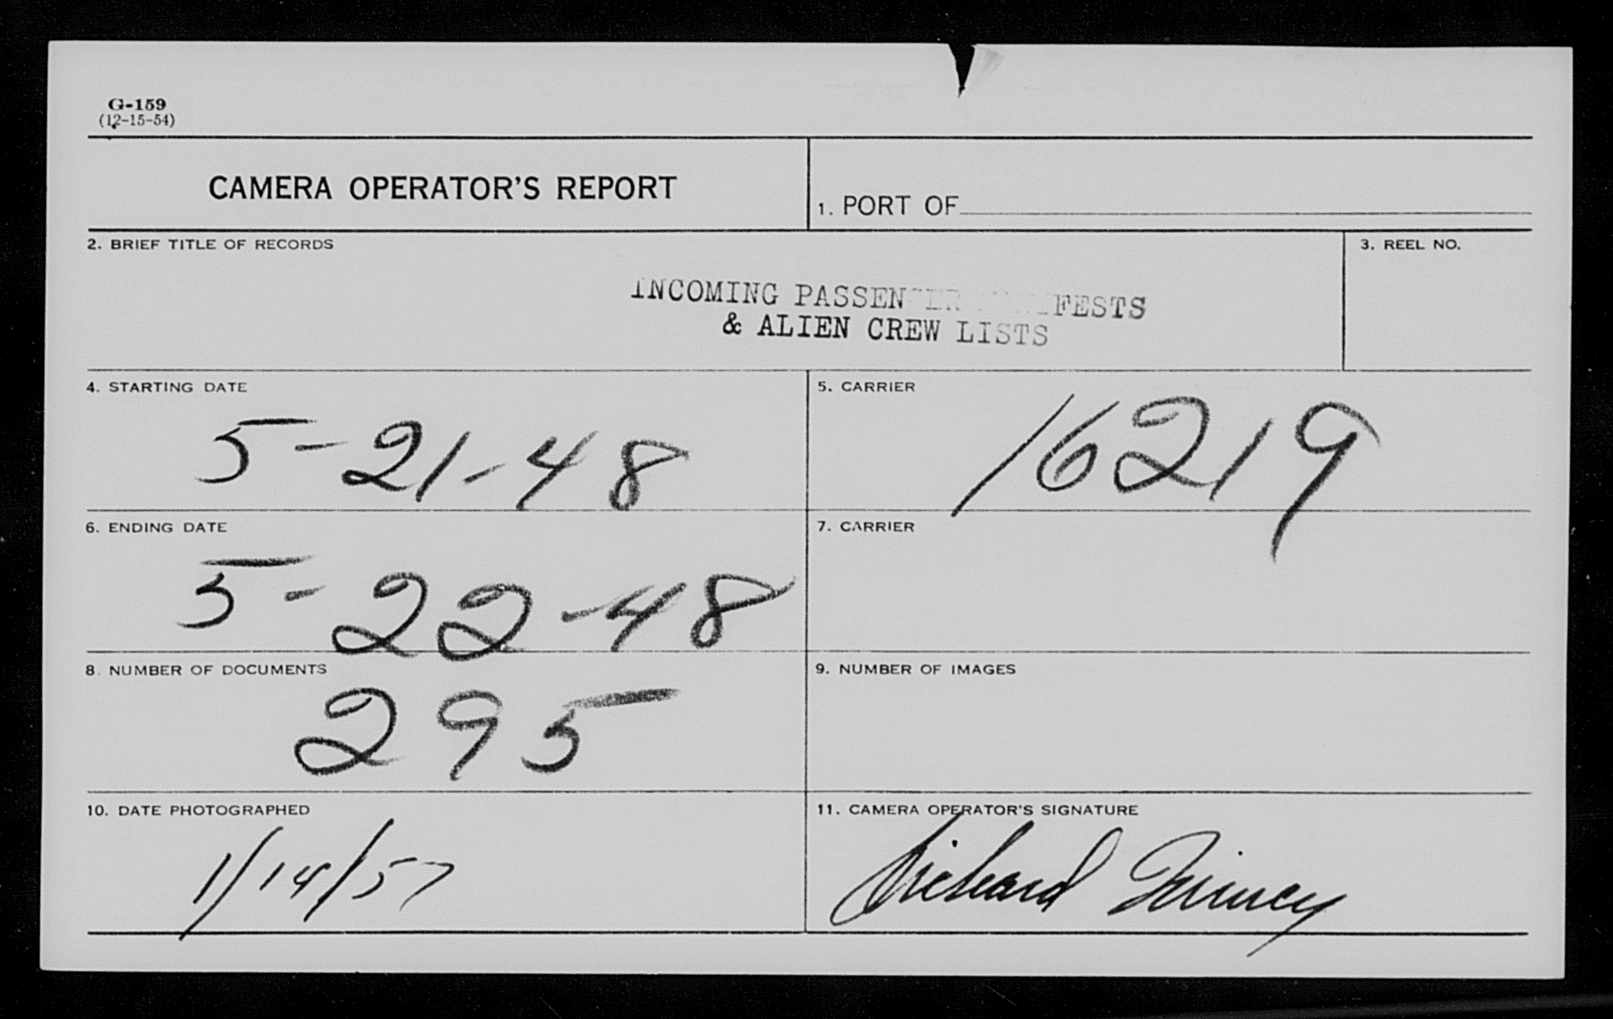 G-159
(12-15-54)
CAMERA OPERATOR'S REPORT
1. PORT OF
2. BRIEF TITLE OF RECORDS
3. REEL NO.
INCOMING PASSENGER MANIFESTS
& ALIEN CREW LISTS
4. STARTING DATE
5-21-48
5. CARRIER
16219
6. ENDING DATE
5-22-48
7. CARRIER
8. NUMBER OF DOCUMENTS
295
9. NUMBER OF IMAGES
10. DATE PHOTOGRAPHED
1/14/57
11. CAMERA OPERATOR'S SIGNATURE
Richard